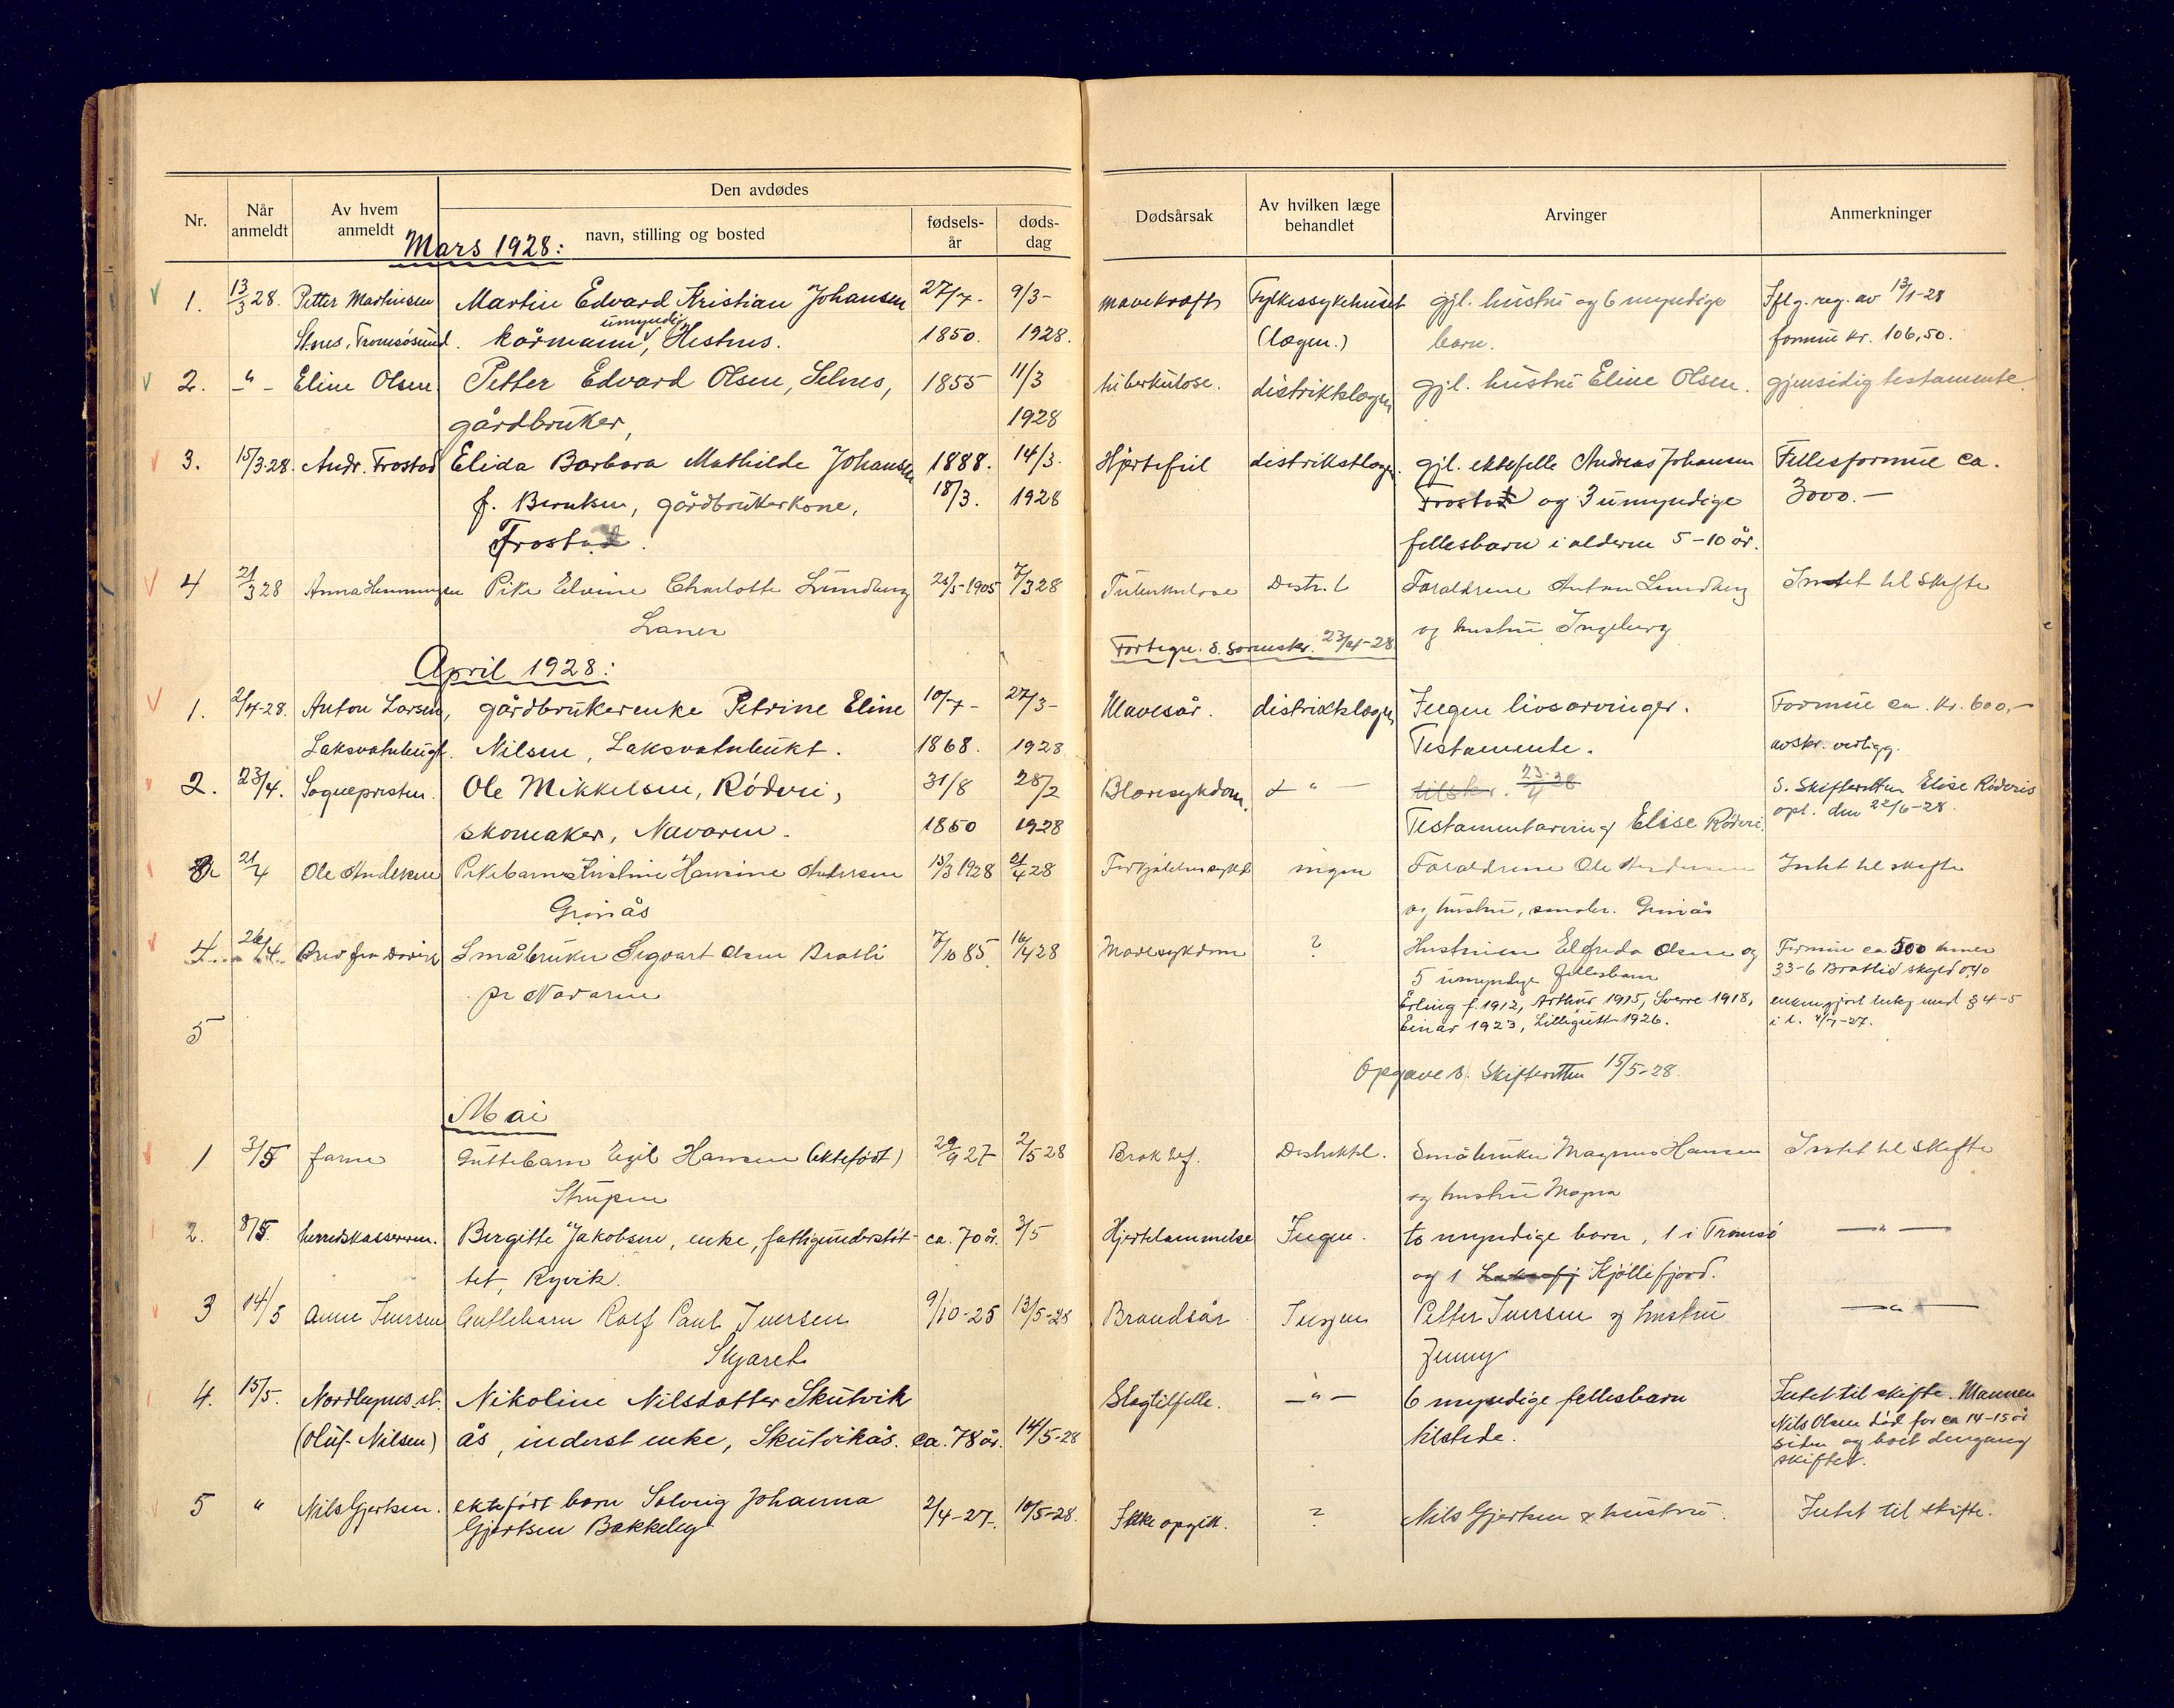 Nr. Når anmeldt Av hvem anmeldt Den avdødes Dødsårsak Av hvilken læge behandlet Arvinger Anmerkninger
navn, stilling og bosted fødsels-år døds-dag
Mars 1928:
1. 13/3 28. Petter Martinsen Martin Edvard Kristian Johansen 27/7- 9/3- mavekræft Fylkessykehuset gjl. hustru og 6 myndige Iflg. reg. av 13/1-28
umyndig
Tromsøsund. kårmann, Hestnes. 1850. 1928. (lægen.) barn. formue kr. 106,50.
2. -"- Eline Olsen Petter Edvard Olsen, Selnes, 1855 11/3 tuberkulose. distriktslægen gjl. hustru Eline Olsen. gjensidig testamente.
gårdbruker, 1928
3. 15/3-28. Andr. Frostad Elida Barbara Mathilde Johansen 1888. 14/3. Hjertefeil distriktslægen. gjl. ektefelle Andreas Johansen Fellesformue ca.
f. Berntsen, gårdbrukerkone, 18/3. 1928 Frostad og 3 umyndige 3000.-
Frostad. fellesbarn i alderen 5-10 år.
4 21/3 28 Anna Hemmingsen Pike Elvine Charlotte Lundberg 1905 7/3 28 Tuberkulose Distr. l Foraldrene Anton Lundberg Intet til skifte
Laner og hustru Ingeborg
Fortegn. s. sorenskr. 23/4-28
April 1928:
1. 2/4-28. Anton Larsen, gårdbrukerenke Petrine Eline 10/7- 27/3- Mavesår. distriktslægen Ingen livsarvinger. Formue ca. kr. 600,-
Laksvatnbugt. Nilsen, Laksvatnbukt. 1868. 1928 Testamente. avskr. vedligg.
2. 23/4. Sogneprester. Ole Mikkelsen, Røderi, 31/8 28/2 Blæresykdom. -"- tilskr. 23-28/4 S. Skifteretten Elise Røderis
skomaker, Navaren. 1850 1928 Testamentarving Elise Røderi. opl. den 22/6-28.
21/4 Ole Andersen Pikebarn Kristine Hansine Andersen 15/3 1928 21/4 28 ingen Foraldrene Ole Andersen Intet til skifte
Grinås og hustru, Grinås
4 26/4. Brev fra Småbruker Sigvart Olsen Bratli 7/10 85 16/4 28 Mavesykdom ? Hustruen Elfrida Olsen og Formue ca 500 kroner
pr Navaren 5 umyndige fellesbarn 33-6 Bratlid skyld 0,40
Erling f. 1912, Arthur 1915, Sverre 1918, enken gjort bekj med § 4-5
Einar 1923, Lillegutt 1926. i l.
5
Opgave s. Skifteretten 15/5-28
Mai
1 3/5 faren Guttebarn Egil Hansen (ektefødt) 29/9 27 2/5 28 Distriktsl. Småbruker Magnus Hansen Intet til skifte
Strupen og hustru Magna
2. 8/5. herredskassereren. Bergitte Jakobsen, enke, fattigunderstøt- ca. 70 år. 3/5 Hjertelammelse Ingen. to myndige barn, 1 i Tromsø -"-
tet, Ryvik. og 1 Kjøllefjord.
3 14/5 Anne Iversen Guttebarn Rolf Paul Iversen 9/10-25 13/5-28 Brandsår Ingen Petter Iversen og hustru -"-
Skjaret Jenny
4. 15/5. Nordbynes. st. Nikoline Nilsdatter Skutvik Slagtilfelle. -"- 6 myndige fellesbarn Intet til skifte. Mannen
(Oluf Nilsen) ås, inderst enke, Skutvikås. ca. 78 år. 14/5-28 tilstede. Nils Olsen død for ca 14-15 år
siden og boet dengang
skiftet.
5 " Nils Gjertsen. ektefødt barn Solveig Johanna 2/4-27. 10/5-28. Ikke opgitt. ? Nils Gjertsen & hustru. Intet til skifte.
Gjertsen Bakkeby